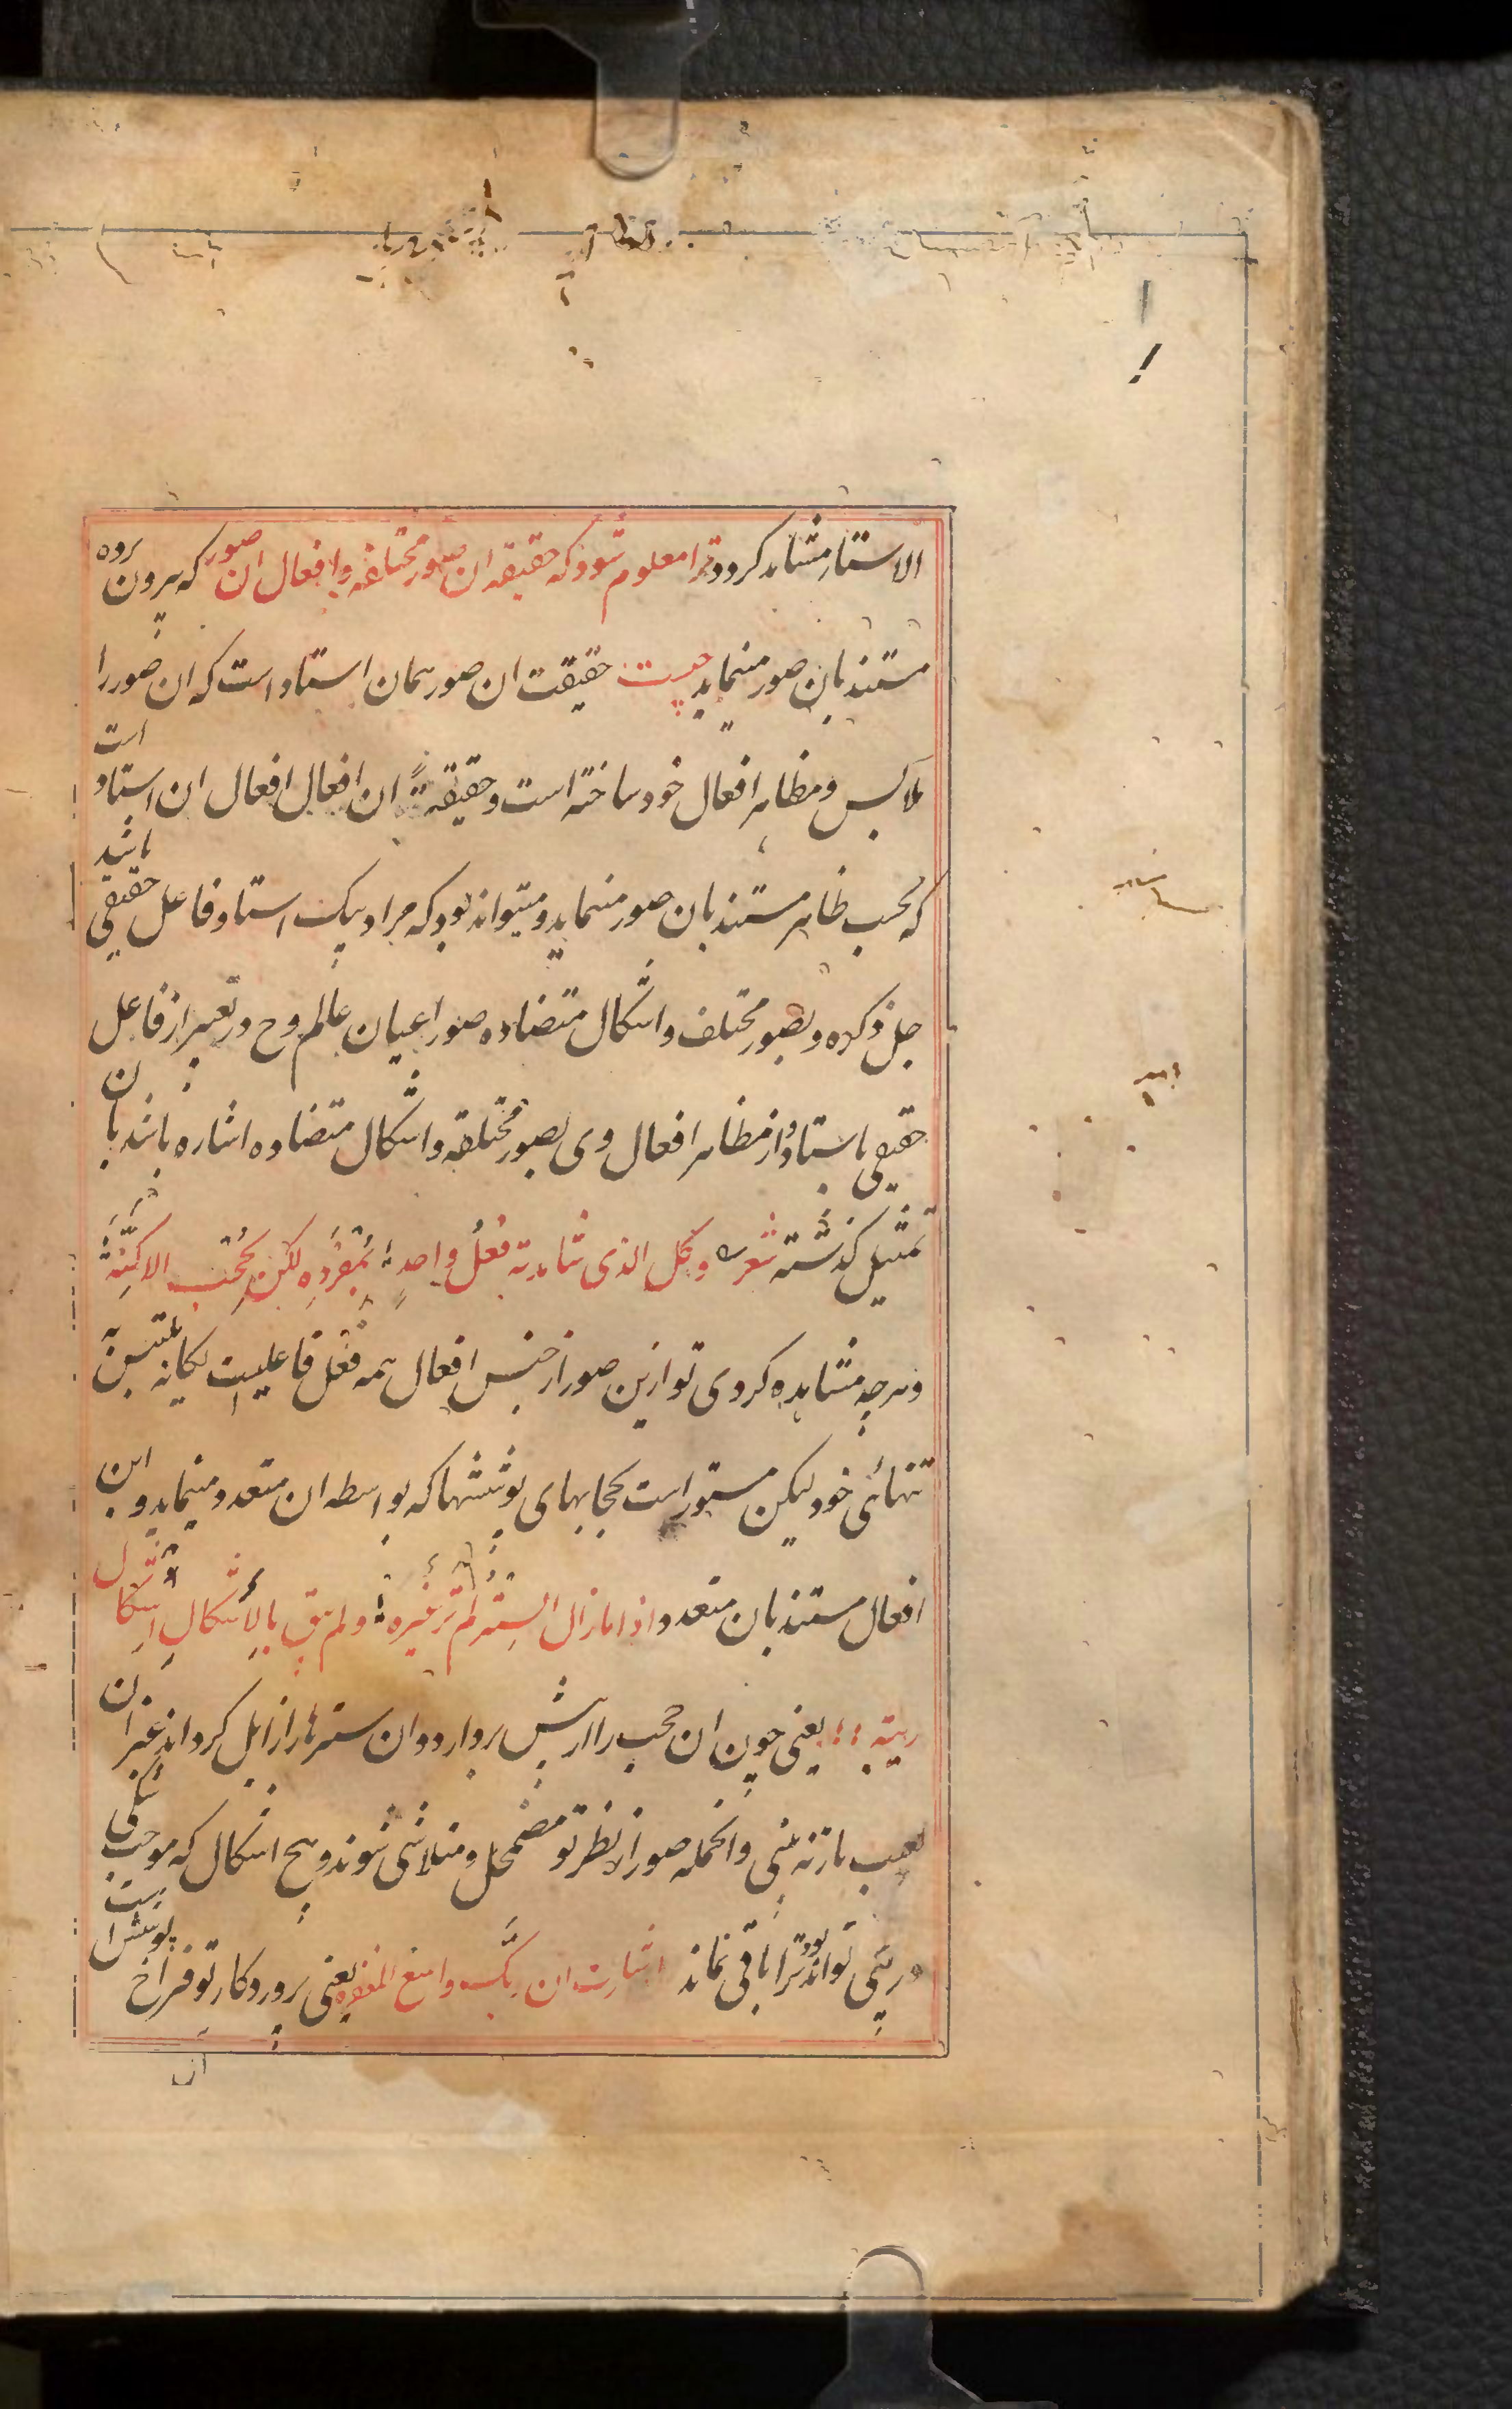 الاستار مشاهد کردد ترا معلوم شود که حقیقه ان صور مختلفه و افعال ان صور که بیرون پرده
مستند بان صور مینماید چیست حقیقت ان صور همان استاد است که ان صور را
ملابس و مظاهر افعال خود ساخته است و حقیقةً ان افعال افعال ان استاد است
که بحسب ظاهر مستند بان صور مینماید و میتواند بود که مراد بیک استاد فاعل حقیقی باشد
جل ذکره و بصور مختلف و اشکال متضاده صور اعیان عالم وح در تعبیر از فاعل
حقیقی باستاد و از مظاهر افعال وی بصور مختلفه و اشکال متضاده اشاره باشد بان
تمثیل کذشته شعر وکل الذی شاهدته فعلُ واحدٍ بمُفرَدِه لکن بحُجُب الاکِنّة
و هرچه مشاهده کردی تو ازین صور از جنس افعال همه فعل فاعلیست یکانه
تنهائی خود لیکن مستور است بحجابهای پوششها که بواسطه ان متعدد مینماید و این
افعال مستند بان متعدد اذا مازال السِتر لم تر غیره ولم یبق بالأشکالِ اشکال
ریبة یعنی چون ان حجب را از پیش بردارد و ان سترها را زایل کرداند غیر ان
لعبت باز نه بینی و انجمله صور از نظر تو مضمحل و متلاشی شوند و هیچ اشکال که موجب شکی
و ریبی تواند بود ترا باقی نماند اشارت ان ربک واسع المغفره یعنی پروردکار تو فراخ پوشش است